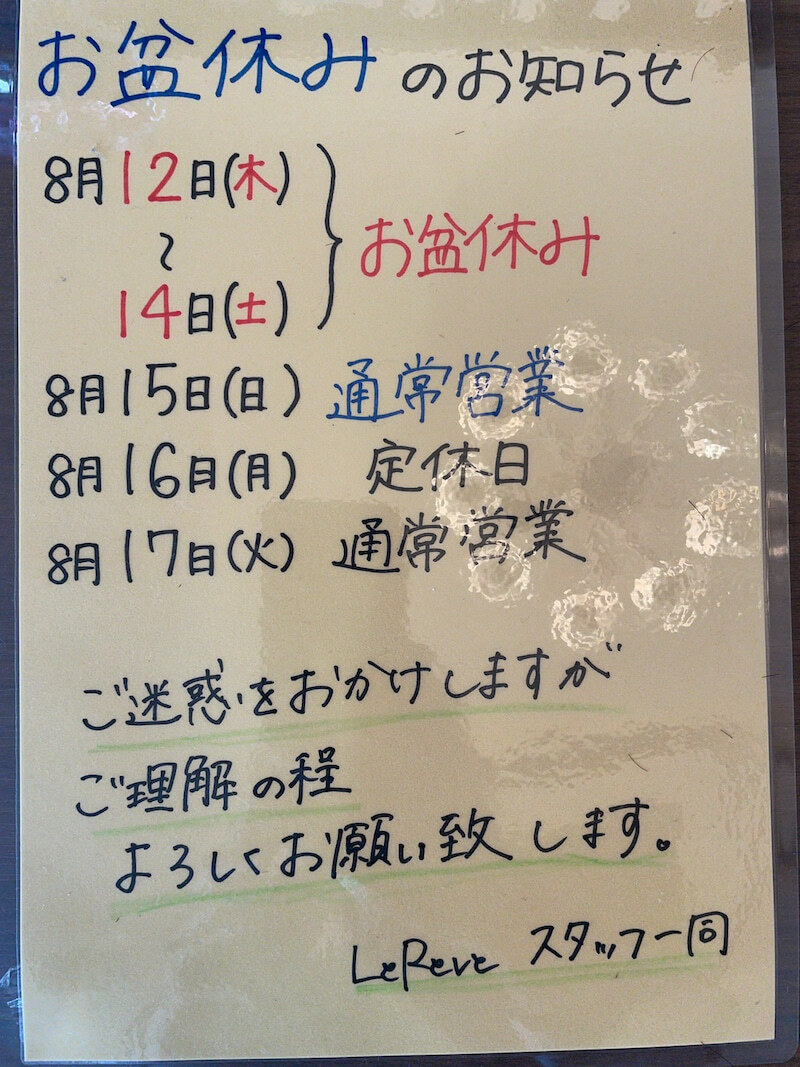 お盆休みのお知らせ
8月12日(木)
〜
14日(土)
お盆休み
8月15日(日) 通常営業
8月16日(月) 定休日
8月17日(火) 通常営業
ご迷惑をおかけしますが
ご理解の程
よろしくお願い致します。
LeReve スタッフ一同